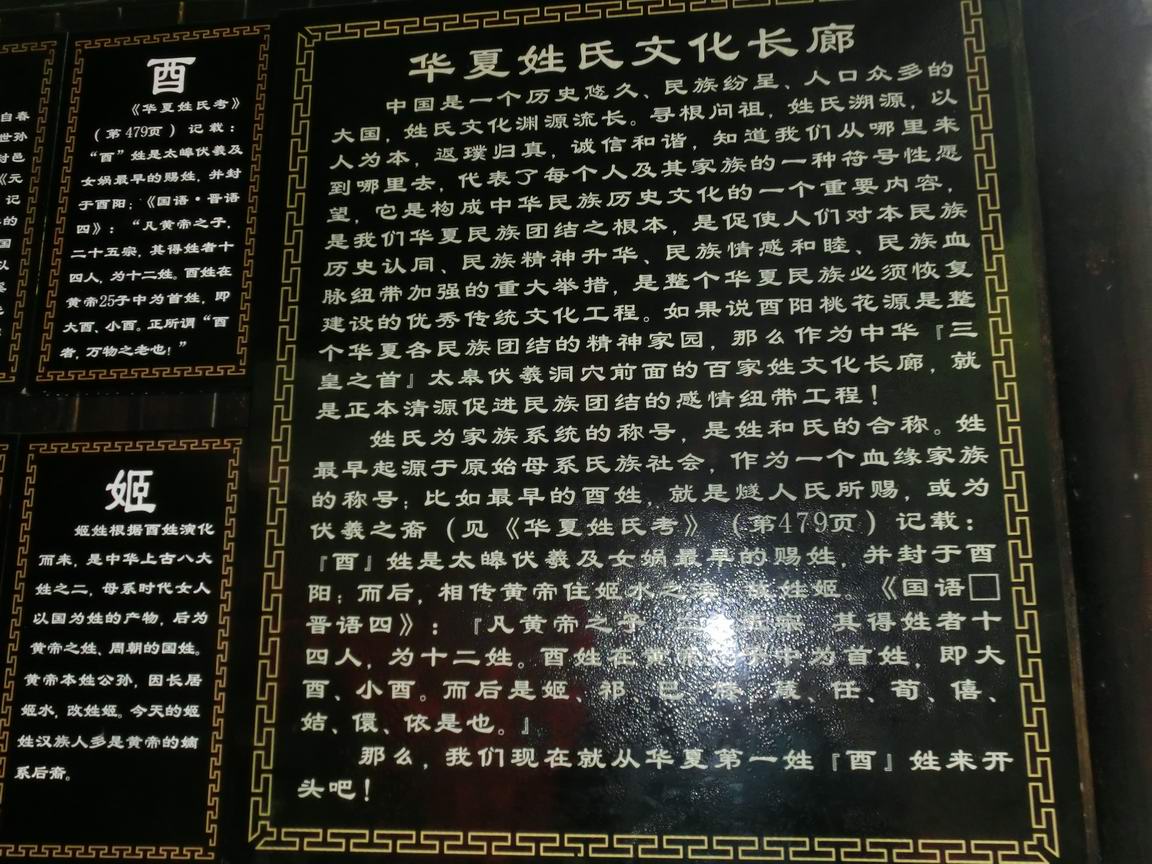 自春
世孙
封邑
《元
记
的
国
以
酉
《华夏姓氏考》
（第479页）记载：
“酉”姓是太皞伏羲及
女娲最早的赐姓，并封
于酉阳；《国语·晋语
四》：“凡黄帝之子，
二十五宗，其得姓者十
四人，为十二姓。酉姓在
黄帝25子中为首姓，即
大酉、小酉。正所谓“酉
者，万物之老也！”
姬
姬姓根据酉姓演化
而来，是中华上古八大
姓之二，母系时代女人
以国为姓的产物，后为
黄帝之姓、周朝的国姓。
黄帝本姓公孙，因长居
姬水，改姓姬。今天的姬
姓汉族人多是黄帝的嫡
系后裔。
华夏姓氏文化长廊
中国是一个历史悠久、民族纷呈、人口众多的
大国，姓氏文化渊源流长。寻根问祖，姓氏溯源，以
人为本，返璞归真，诚信和谐，知道我们从哪里来
到哪里去，代表了每个人及其家族的一种符号性愿
望，它是构成中华民族历史文化的一个重要内容，
是我们华夏民族团结之根本，是促使人们对本民族
历史认同、民族精神升华、民族情感和睦、民族血
脉纽带加强的重大举措，是整个华夏民族必须恢复
建设的优秀传统文化工程。如果说酉阳桃花源是整
个华夏各民族团结的精神家园，那么作为中华『三
皇之首』太皋伏羲洞穴前面的百家姓文化长廊，就
是正本清源促进民族团结的感情纽带工程！
姓氏为家族系统的称号，是姓和氏的合称。姓
最早起源于原始母系氏族社会，作为一个血缘家族
的称号；比如最早的酉姓，就是燧人氏所赐，或为
伏羲之裔（见《华夏姓氏考》（第479页）记载：
『酉』姓是太皞伏羲及女娲最早的赐姓，并封于酉
阳；而后，相传黄帝住姬水之 故姓姬。《国语□
晋语四》：『凡黄帝之子 二 五宗 其得姓者十
四人，为十二姓。酉姓在黄帝 子中为首姓，即大
酉、小酉。而后是姬、祁 巳 滕 葴、任、荀、僖、
姞、儇、依是也。』
那么，我们现在就从华夏第一姓『酉』姓来开
头吧！